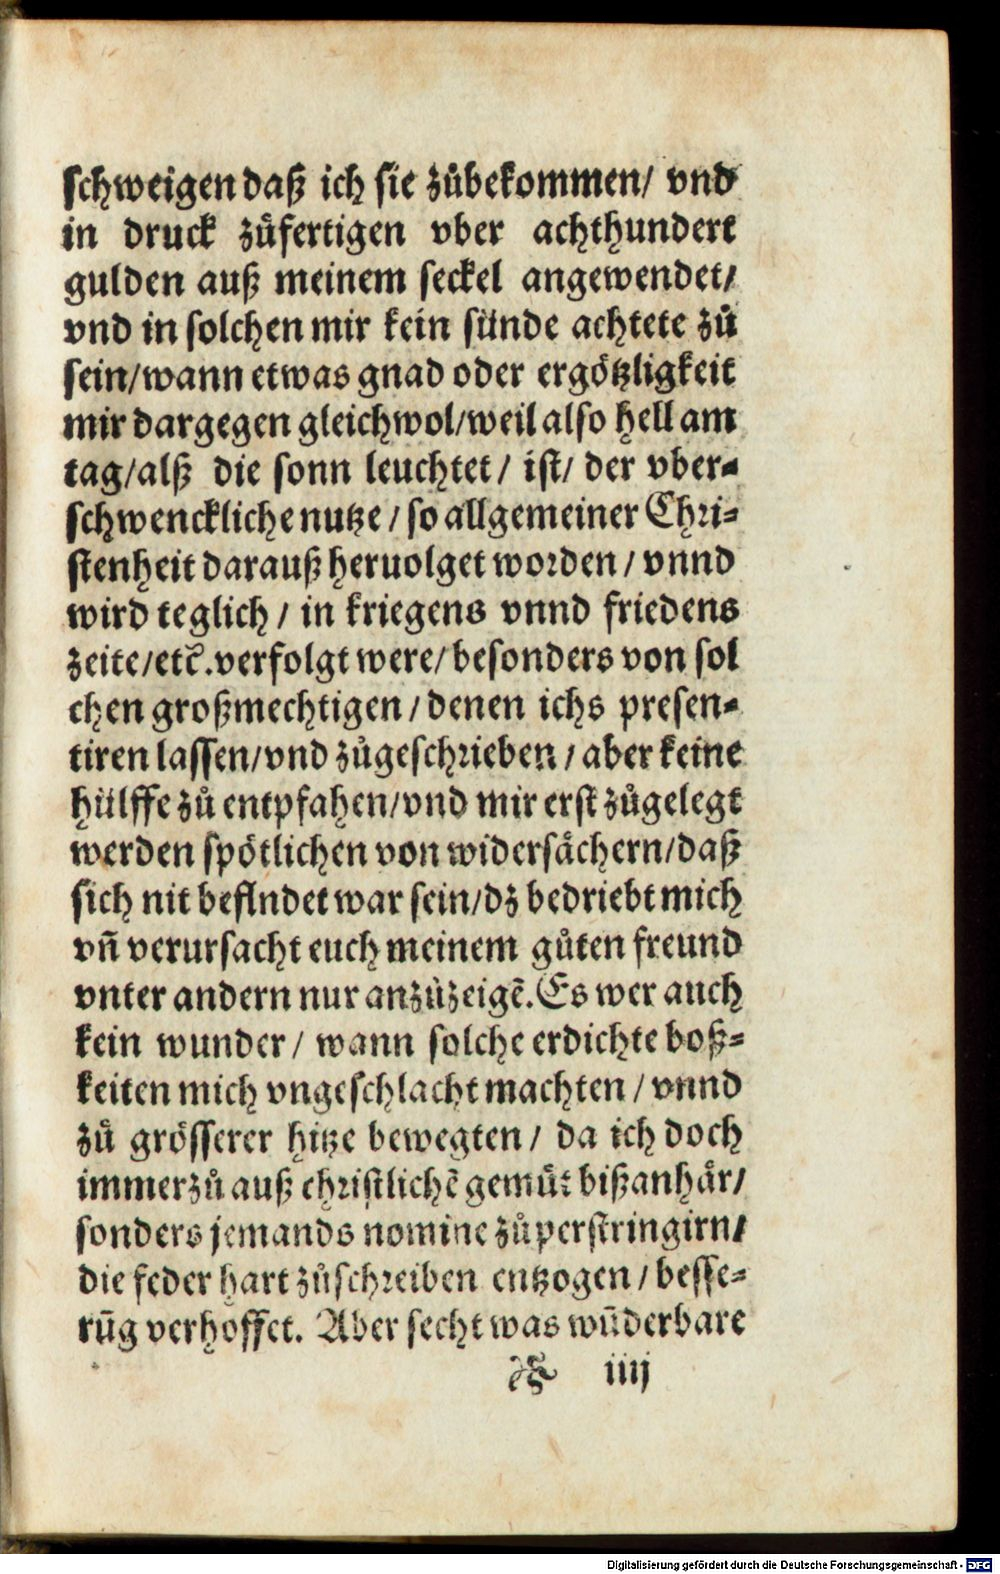 schweigen daß ich sie zůbekommen/ vnd
in druck zůfertigen vber achthundert
gulden auß meinem seckel angewendet/
vnd in solchen mir kein sünde achtete zů
sein/wann etwas gnad oder ergötzligkeit
mir dargegen gleichwol/weil also hell am
tag/alß die sonn leuchtet/ ist/ der vber-
schwenckliche nutze/so allgemeiner Chri-
stenheit darauß heruolget worden/vnnd
wird teglich/ in kriegens vnnd friedens
zeite/etc̃.verfolgt were/besonders von sol
chen großmechtigen/denen ichs presen-
tiren lassen/vnd zůgeschrieben/aber keine
hülffe zů entpfahen/vnd mir erst zůgelegt
werden spötlichen von widersächern/daß
sich nit befindet war sein/dz bedriebt mich
vñ verursacht euch meinem gůten freund
vnter andern nur anzůzeigẽ.Es wer auch
kein wunder/ wann solche erdichte boß-
keiten mich vngeschlacht machten/vnnd
zů grösserer hitze bewegten/ da ich doch
immerzů auß christlichẽ gemüt bißanhär/
sonders jemands nomine zůperstringirn/
die feder hart zůschreiben entzogen/besse-
rũg verhoffet. Aber secht was wũderbare
iiij
Digitalisierung gefördert durch die Deutsche Forschungsgemeinschaft - DFG